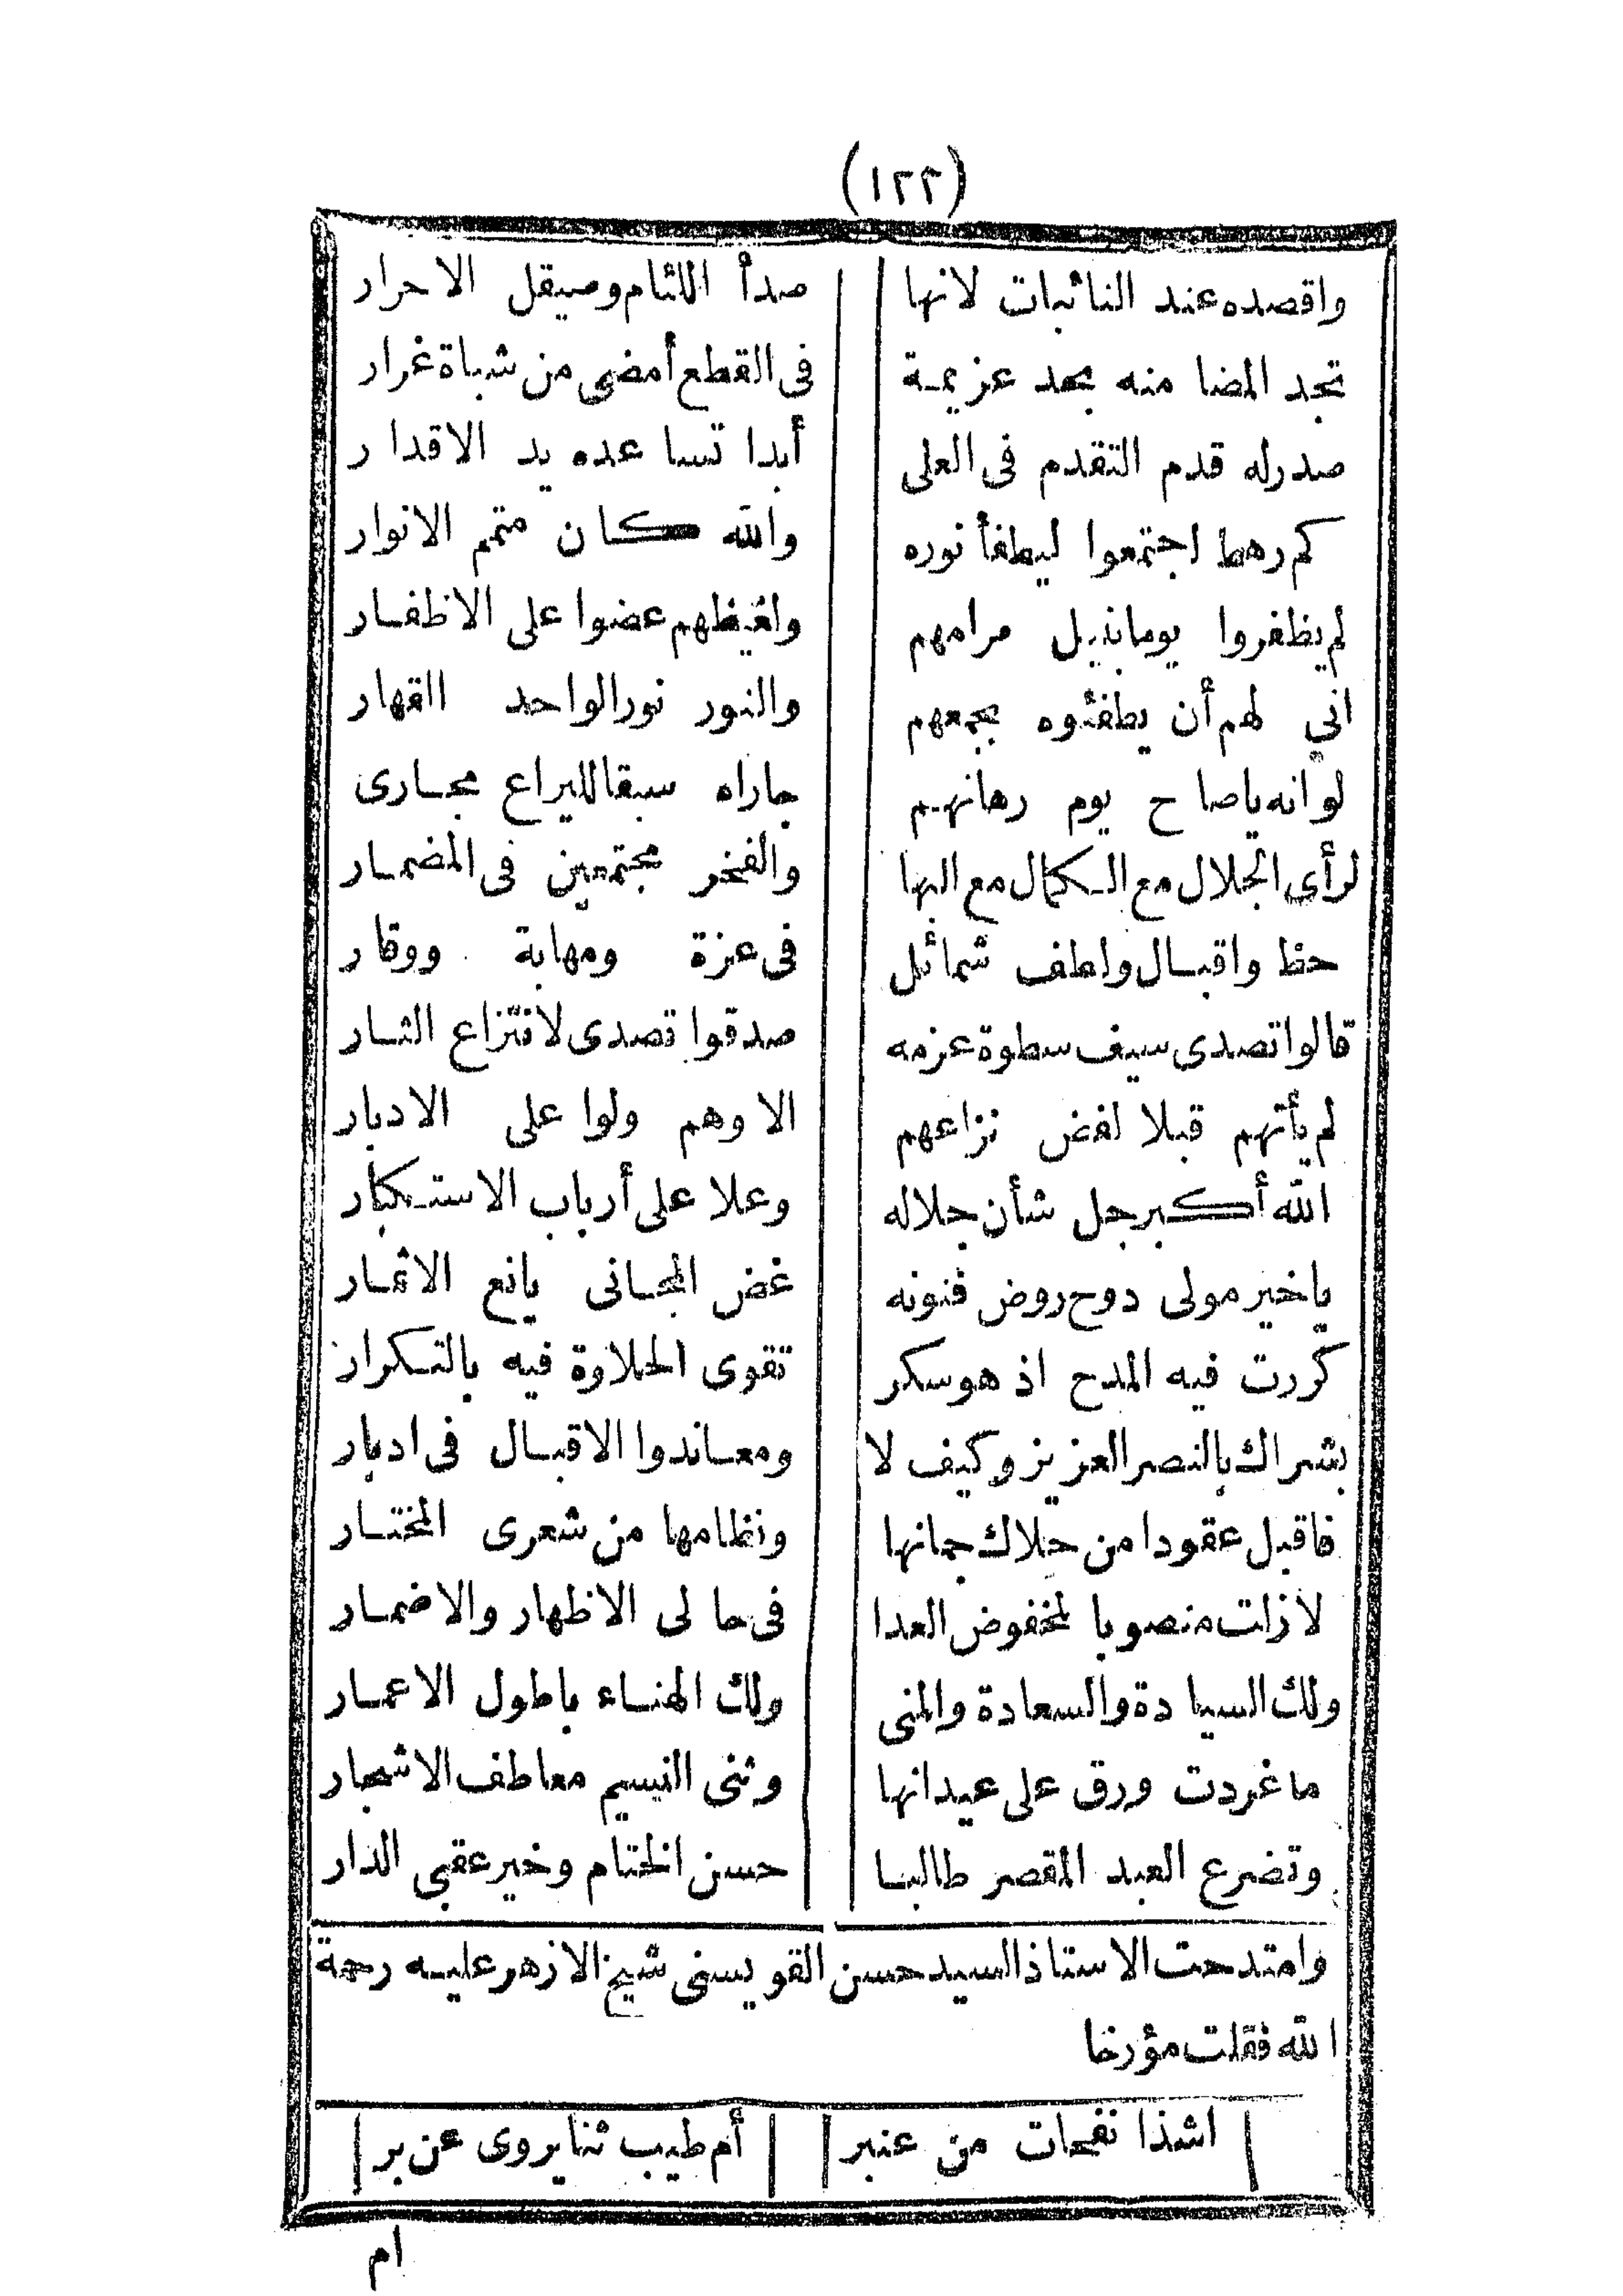 (١٢٢)
واقصده عند النائبات لانها صدأ اللئام وصيقل الاحرار
تجد المضا منه بحد عزيمة فى القطع أمضى من شباة غرار
صدر له قدم التقدم فى العلى أبدا تساعده يد الاقدار
كم رهط اجتمعوا ليطفأ نوره والله كان متمم الانوار
لم يظفروا يوما بنيل مرامهم ولغيظهم عضوا على الاظفار
انى لهم أن يطفئوه بجمعهم والنور نور الواحد القهار
لو انه ياصاح يوم رهانهم جاراه سبقا لليراع مجارى
لرأى الجلال مع الكمال مع البها والفخر مجتمعين فى المضمار
حظ واقبال ولطف شمائل فى عزة ومهابة ووقار
قالوا تصدى سيف سطوة عزمه صدقوا تصدى لانتزاع الثار
لم يأتهم قبلا لفض نزاعهم الا وهم ولوا على الادبار
الله أكبر جل شأن جلاله وعلا على أرباب الاستكبار
ياخير مولى دوح روض فنونه غض المجانى يانع الاثمار
كررت فيه المدح اذ هو سكر تقوى الحلاوة فيه بالتكرار
بشراك بالنصر العزيز وكيف لا ومعاندوا الاقبال فى ادبار
فاقبل عقودا من حلاك جمانها ونظامها من شعرى المختار
لازلت منصوبا لمخفوض العدا فى حالى الاظهار والاضمار
ولك السيادة والسعادة والمنى ولك الهناء باطول الاعمار
ماغردت ورق على عيدانها وثنى النسيم معاطف الاشجار
وتضرع العبد المقصر طالبا حسن الختام وخير عقبى الدار
وامتدحت الاستاذ السيد حسن القويسنى شيخ الازهر عليه رحمة
الله فقلت مؤرخا
اشذا نفحات من عنبر أم طيب ثنا يروى عن بر
ام